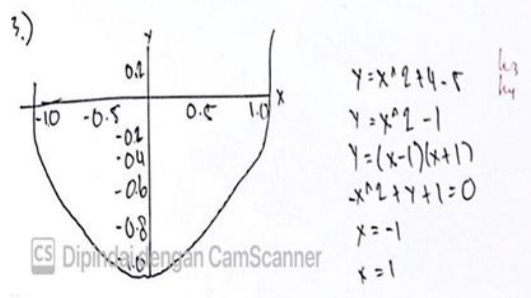 3.)
y
0.2
-1.0 -0.5 0.5 1.0 X
-0.2
-0.4
-0.6
-0.8
-1.0
y = x^2+4-5
y = x^2-1
y = (x-1)(x+1)
-x^2+y+1=0
x = -1
x = 1
CS Dipindai dengan CamScanner